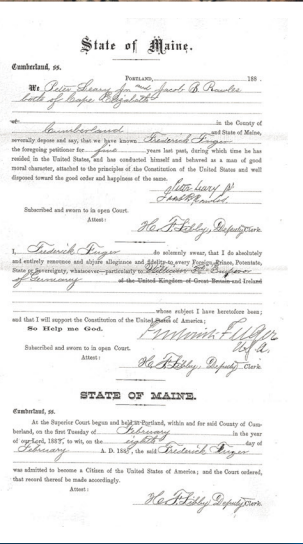 State of Maine.
Cumberland, ss.
PORTLAND, 188 .
We, Peter Leary Jr and Jacob B.
both of Cape Elizabeth
of in the County of
Cumberland and State of Maine,
severally depose and say, that we have known Frederick
the foregoing petitioner for five years last past, during which time he has
resided in the United States, and has conducted himself and behaved as a man of good
moral character, attached to the principles of the Constitution of the United States and well
disposed toward the good order and happiness of the same.
Peter Leary Jr
Subscribed and sworn to in open Court.
Attest:
H. F. Libby, Deputy Clerk.
I, Frederick do solemnly swear, that I do absolutely
and entirely renounce and abjure allegiance and fidelity to every Foreign Prince, Potentate,
State or Sovereignty, whatsoever—particularly to William Emperor
of Germany of the United Kingdom of Great Britain and Ireland
whose subject I have heretofore been;
and that I will support the Constitution of the United States of America;
So Help me God.
Subscribed and sworn to in open Court.
Attest:
H. F. Libby, Deputy Clerk.
STATE OF MAINE.
Cumberland, ss.
At the Superior Court begun and held at Portland, within and for said County of Cum-
berland, on the first Tuesday of February in the year
of our Lord, 188 , to wit, on the eighth day of
February A. D. 188 , the said Frederick
was admitted to become a Citizen of the United States of America; and the Court ordered,
that record thereof be made accordingly.
Attest:
H. F. Libby, Deputy Clerk.